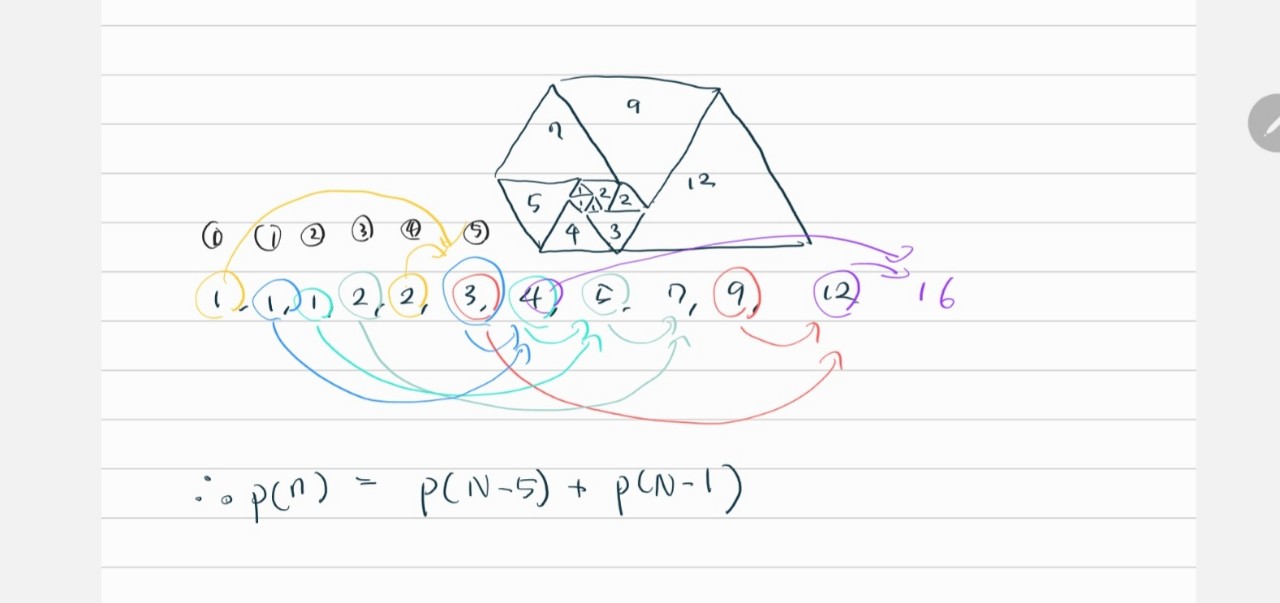 9
7
12
5 1 2
1 1 2
4 3
⓪ ① ② ③ ④ ⑤
1, 1, 1, 2, 2, 3, 4, 5, 7, 9, 12 16
∴ p(n) = p(N-5) + p(N-1)